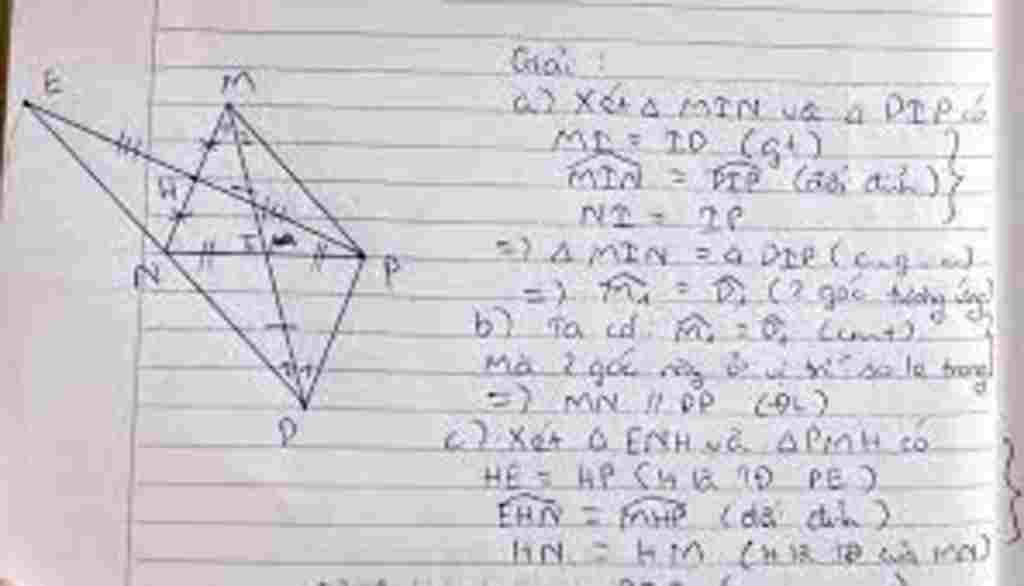 E
M
H
N
I
P
D
Giải :
a) Xét Δ MIN và Δ DIP có
MI = ID (gt)
MIN = DIP (đối đỉnh)
NI = IP
=) Δ MIN = Δ DIP (c.g.c)
=) M₁ = D₁ (2 góc tương ứng)
b) Ta có: M₁ = D₁ (cmt)
Mà 2 góc này ở vị trí so le trong
=) MN // DP (ĐL)
c) Xét Δ ENH và ΔPMH có
HE = HP (H là TĐ PE)
EHN = MHP (đối đỉnh)
HN = HM (H là TĐ của MN)